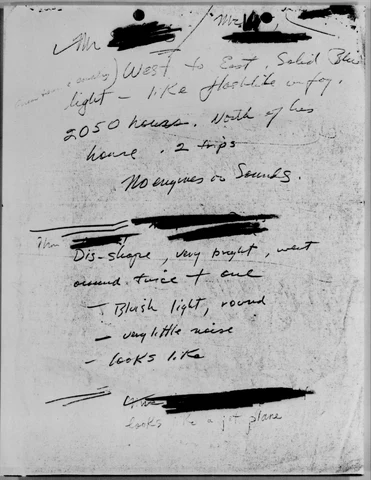 Mr
Mr
) West to East. Solid Blue
light - like flashlite in fog.
2050 hours. North of his
house. 2 trips
No engines or Sounds.
Dis-shape, very bright, went
around twice + one
- Bluish light, round
- very little noise
- looks like
looks like a jet plane